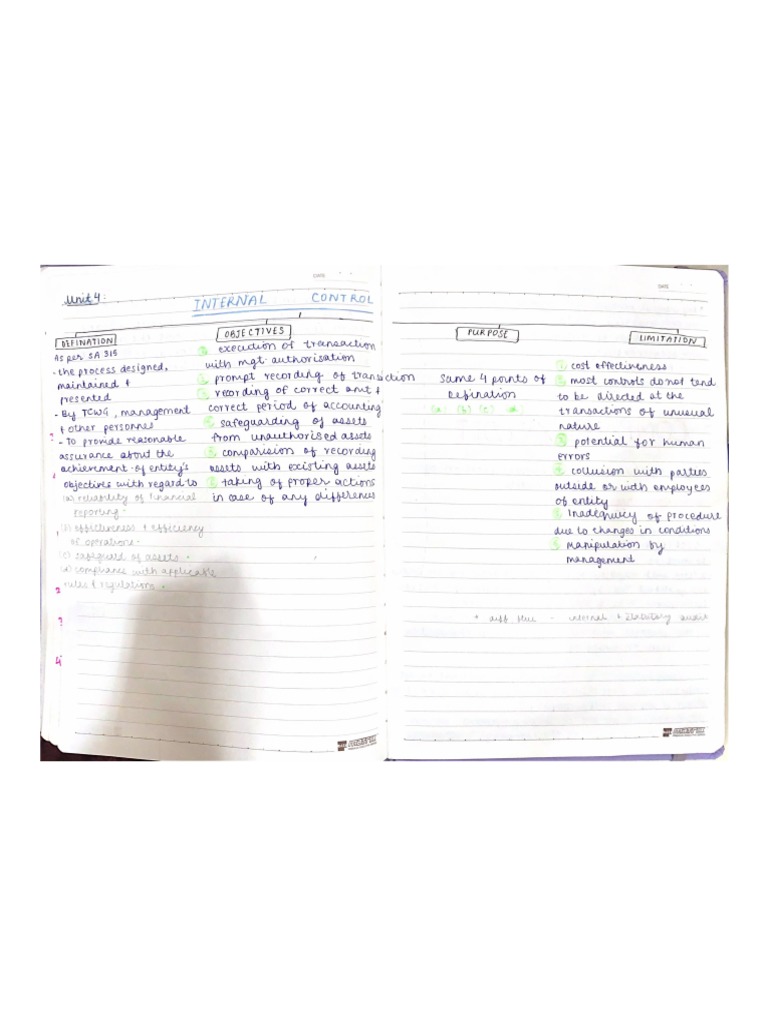 DATE
DATE
Unit 4:
INTERNAL CONTROL
DEFINATION
As per SA 315
- the process designed,
maintained &
presented
- By TCWG, management
& other personnes
- To provide reasonable
assurance about the
achievement of entity's
objectives with regard to
(a) reliability of financial
reporting.
(b) effectiveness & efficiency
of operations.
(c) safeguard of assets.
(d) compliance with applicable
rules & regulations.
2
3
4
OBJECTIVES
execution of transaction
with mgt authorisation
prompt recording of transaction
recording of correct amt &
correct period of accounting
safeguarding of assets
from unauthorised assets
comparision of recording
assets with existing assets
taking of proper actions
in case of any differences
PURPOSE
same 4 points of
defination
(a) (b) (c) d
LIMITATION
cost effectiveness
most controls do not tend
to be directed at the
transactions of unusual
nature
potential for human
errors
collusion with parties
outside or with employees
of entity
Inadequacy of procedure
due to changes in conditions
manipulation by
management
+ diff internal & statutory audit